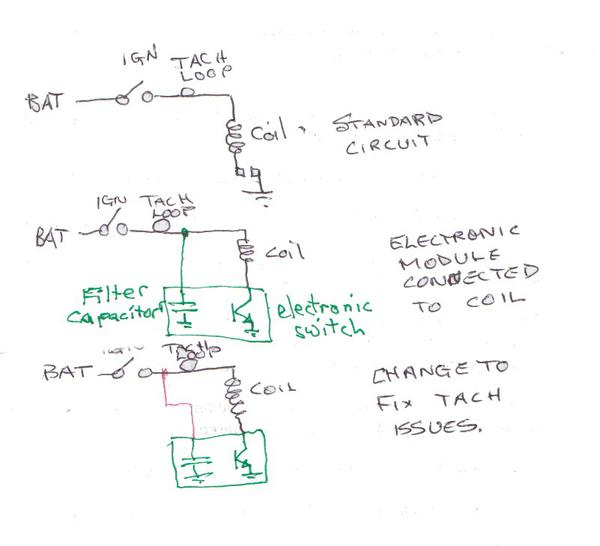 IGN
TACH
LOOP
BAT
Coil
STANDARD
CIRCUIT
IGN
TACH
LOOP
BAT
Coil
ELECTRONIC
MODULE
CONNECTED
TO COIL
Filter
Capacitor
electronic
switch
IGN
TACH
LOOP
BAT
COIL
CHANGE TO
FIX TACH
ISSUES.